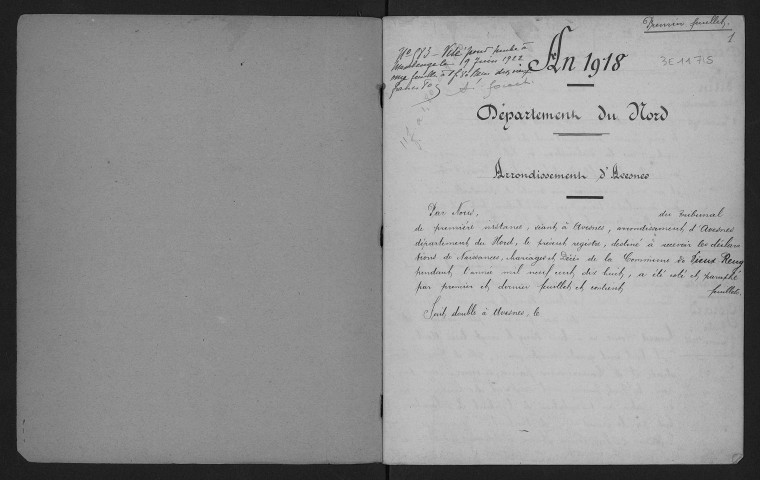 Premier feuillet.
1
3E11715
N° 993 - Visé pour timbre à
Maubeuge le 19 Juin 1922
An 1918
Département du Nord
Arrondissement d'Avesnes
Par Nous, du tribunal
de première instance, séant à Avesnes, arrondissement d'Avesnes
département du Nord, le présent registre, destiné à recevoir les déclara
tions de Naissances, Mariages et Décès de la Commune de Vieux Reng
pendant l'année mil neuf cent dix huit, a été coté et paraphé
par premier et dernier feuillet et contient feuillets.
Fait double à Avesnes, le